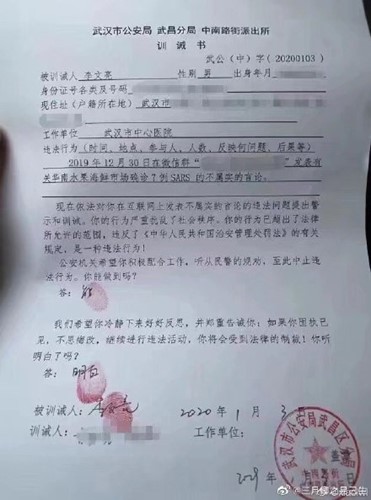 武汉市公安局 武昌分局 中南路街派出所
训 诫 书
武公（中）字（20200103）
被训诫人 李文亮 性别 男 出身年月
身份证号各类及号码
现住址（户籍所在地） 武汉市
工作单位 武汉市中心医院
违法行为（时间、地点、参与人、人数、反映何问题、后果等）
2019年12月30日在微信群“ ”发表有
关华南水果海鲜市场确诊7例SARS的不属实的言论。
现在依法对你在互联网上发表不属实的言论的违法问题提出警
示和训诫。你的行为严重扰乱了社会秩序。你的行为已超出了法律
所允许的范围，违反了《中华人民共和国治安管理处罚法》的有关
规定，是一种违法行为！
公安机关希望你积极配合工作，听从民警的规劝，至此中止违
法行为。你能做到吗？
答：能
我们希望你冷静下来好好反思，并郑重告诫你：如果你固执己
见，不思悔改，继续进行违法活动，你将会受到法律的制裁！你听
明白了吗？
答：明白
被训诫人：李文亮 2020年1月3日
训诫人： 工作单位：
武汉市公安局武昌区